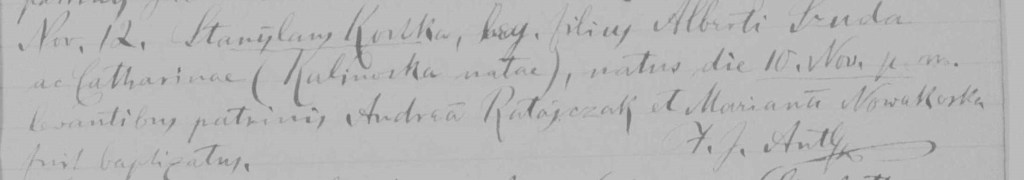 Nov. 12. Stanislaus Kostka, leg. filius Alberti Szuda
ac Catharinae (Kalinoska natae), natus die 10. Nov. p. m.
levantibus patrinis Andrea Ratajczak et Marianna Nowakoska
fuit baptizatus. F. J.